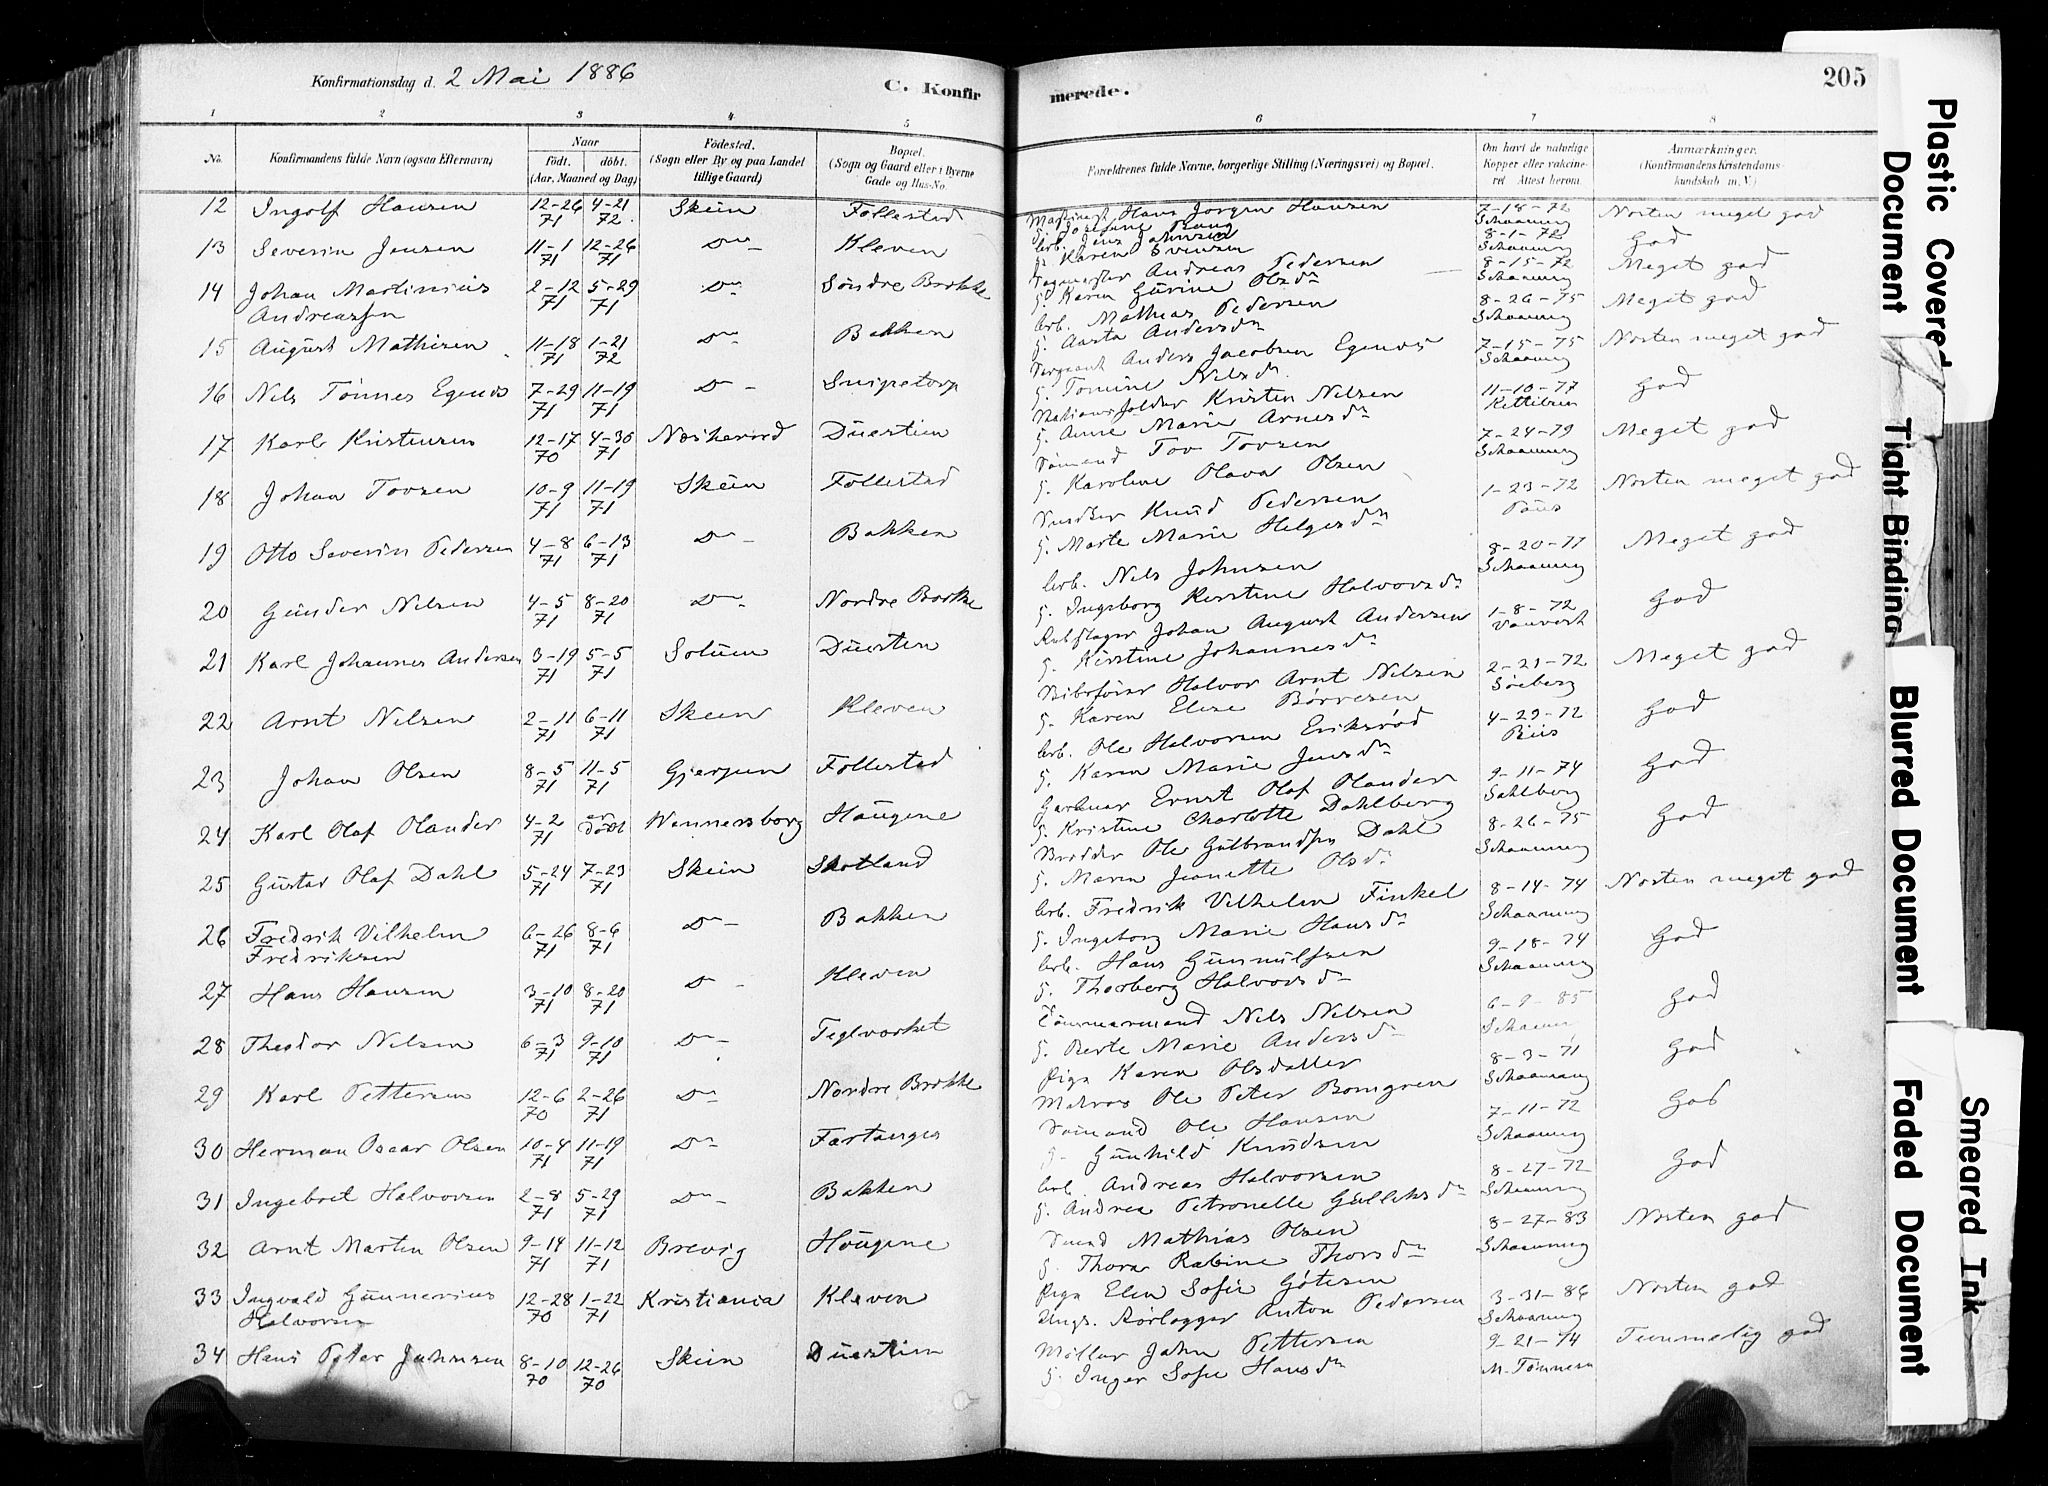 Konfirmationsdag d. 2 Mai 1886
C. Konfirmerede.
205
1 2 3 4 5 6 7 8
No.
Konfirmandens fulde Navn (ogsaa Efternavn)
Naar
født. døbt.
(Aar, Maaned og Dag)
Fødested.
(Sogn eller By og paa Landet
tillige Gaard)
Bopæl.
(Sogn og Gaard eller i Byerne
Gade og Hus-No.
Forældrenes fulde Navne, borgerlige Stilling (Næringsvei) og Bopæl.
Om havt de naturlige
Kopper eller vaccineret
Attest herom.
Anmærkninger.
(Konfirmandens Kristendomskundskab
m. V.)
12 Ingolf Hansen 12-26 71 4-21 72 Skien Follestad Hans Jørgen Hansen 7-18-72 Schaaning Nesten meget god
13 Severin Jensen 11-1 71 12-26 71 Do Kleven Arb. Jens Johnsen
g. Karen Svensen 8-1-72 Schaaning God
14 Johan Martinius
Andreassen 2-12 71 5-29 71 Do Søndre Brekke Andreas Pedersen
g. Karen Gurine Olsdn 8-15-72 Schaaning Meget god
15 August Mathisen 11-18 71 1-21 72 Do Bakken Arb. Mathias Pedersen
g. Aasta Andersdn 8-26-75 Schaaning Meget god
16 Nils Tønnes Egenes 7-29 71 11-19 71 Do Snipetorp Sergeant Anders Jacobsen Egenes
g. Tomine Nilsdn 7-15-75 Schaaning Nesten meget god
17 Karl Kristensen 12-17 70 4-30 71 Duestien Kristen Nilsen
g. Anne Marie Arnesdn 11-10-77 Kittilsen God
18 Johan Tovsen 10-9 71 11-19 71 Skien Follestad Sømand Tov Tovsen
g. Karoline Olava Olsen 7-24-79 Schaaning Meget god
19 Otto Severin Pedersen 4-8 71 6-13 71 Do Bakken Snedker Knud Pedersen
g. Marte Marie Helgesdn 1-23-72 Nesten meget god
20 Gunder Nilsen 4-5 71 8-20 71 Do Nordre Brekke Arb. Nils Johnsen
g. Ingeborg Kerstine Halvorsdn 8-20-77 Schaaning Meget god
21 Karl Johannes Andersen 3-19 71 5-5 71 Solum Duestien Rebslager Johan August Andersen
g. Kirstine Johannesdn 1-8-72 God
22 Arnt Nilsen 2-11 71 6-11 71 Skien Kleven Halvor Arnt Nilsen
g. Karen Elise Børresen 2-21-72 Søeberg Meget god
23 Johan Olsen 8-5 71 11-5 71 Gjerpen Follestad Arb. Ole Halvorsen Eriksrød
g. Karen Marie Jensdn 4-29-72 God
24 Karl Olaf Olander 4-2 71 er døbt Wennersborg Haugene Garver Ernst Olaf Olander
g. Kristine Charlotte Dahlberg 9-11-74 Sahlberg God
25 Gustav Olaf Dahl 5-24 71 7-23 71 Skien Skotland Ole Gulbrandsen Dahl
g. Maren Jeanette Olsdn 8-26-75 Schaaning God
26 Fredrik Vilhelm
Fredriksen 6-26 71 8-6 71 Do Bakken Arb. Fredrik Vilhelm Finkel
g. Ingeborg Marie Hansdn 8-14-74 Schaaning Nesten meget god
27 Hans Hansen 3-10 71 8-20 71 Do Kleven Arb. Hans Gunnulfsen
g. Thorberg Halvorsdn 9-18-74 Schaaning God
28 Theodor Nilsen 6-3 71 9-10 71 Do Teglverket Tømmermand Nils Nilsen
g. Berte Marie Andersdn 6-9-85 God
29 Karl Pettersen 12-6 70 2-26 71 Do Nordre Brekke Pige Karen Olsdatter
Matros Ole Peter Bomgren 8-3-71 Schaaning God
30 Herman Oscar Olsen 10-4 71 11-19 71 Do Sømand Ole Hansen
g. Gunhild Knudsen 7-11-72 Schaaning God
31 Ingebret Halvorsen 2-8 71 5-29 71 Do Bakken Arb. Andreas Halvorsen
g. Andrea Petronelle Gulleksdn 8-27-72 Schaaning God
32 Arnt Martin Olsen 9-14 71 11-12 71 Brevig Haugene Mathias Olsen
g. Thora Rabine Thorsdn 8-27-83 Schaaning Nesten god
33 Ingvald Gunnerius
Halvorsen 12-28 70 1-22 71 Kristiania Kleven Pige Elen Sofie Gøtesen
Ungk. Rørlægger Anton Pedersen 3-31-86 Schaaning Nesten god
34 Hans Peter Johnsen 8-10 70 12-26 70 Skien Duestien Møller John Pettersen
g. Inger Sofie Hansdn 9-21-74 M. Tønnesen Temmelig god
Plastic Covered Document
Tight Binding
Blurred Document
Faded Document
Smeared Ink